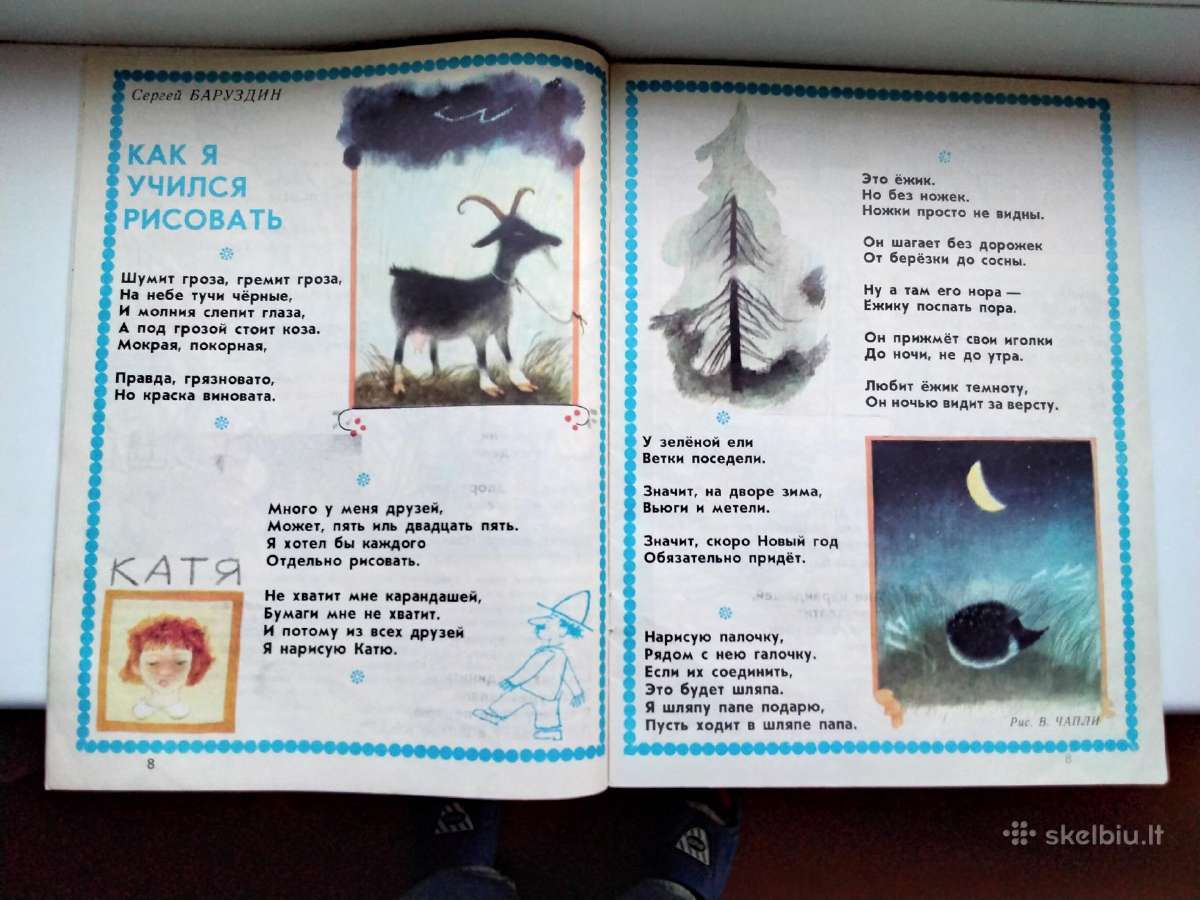 Сергей БАРУЗДИН
КАК Я
УЧИЛСЯ
РИСОВАТЬ
Шумит гроза, гремит гроза,
На небе тучи чёрные,
И молния слепит глаза,
А под грозой стоит коза.
Мокрая, покорная,
Правда, грязновато,
Но краска виновата.
Много у меня друзей,
Может, пять иль двадцать пять.
Я хотел бы каждого
Отдельно рисовать.
Не хватит мне карандашей,
Бумаги мне не хватит.
И потому из всех друзей
Я нарисую Катю.
КАТЯ
8
У зелёной ели
Ветки поседели.
Значит, на дворе зима,
Вьюги и метели.
Значит, скоро Новый год
Обязательно придёт.
Нарисую палочку,
Рядом с нею галочку.
Если их соединить,
Это будет шляпа.
Я шляпу папе подарю,
Пусть ходит в шляпе папа.
Это ёжик.
Но без ножек.
Ножки просто не видны.
Он шагает без дорожек
От берёзки до сосны.
Ну а там его нора —
Ёжику поспать пора.
Он прижмёт свои иголки
До ночи, не до утра.
Любит ёжик темноту,
Он ночью видит за версту.
Рис. В. ЧАПЛИ
8
skelbiu.lt